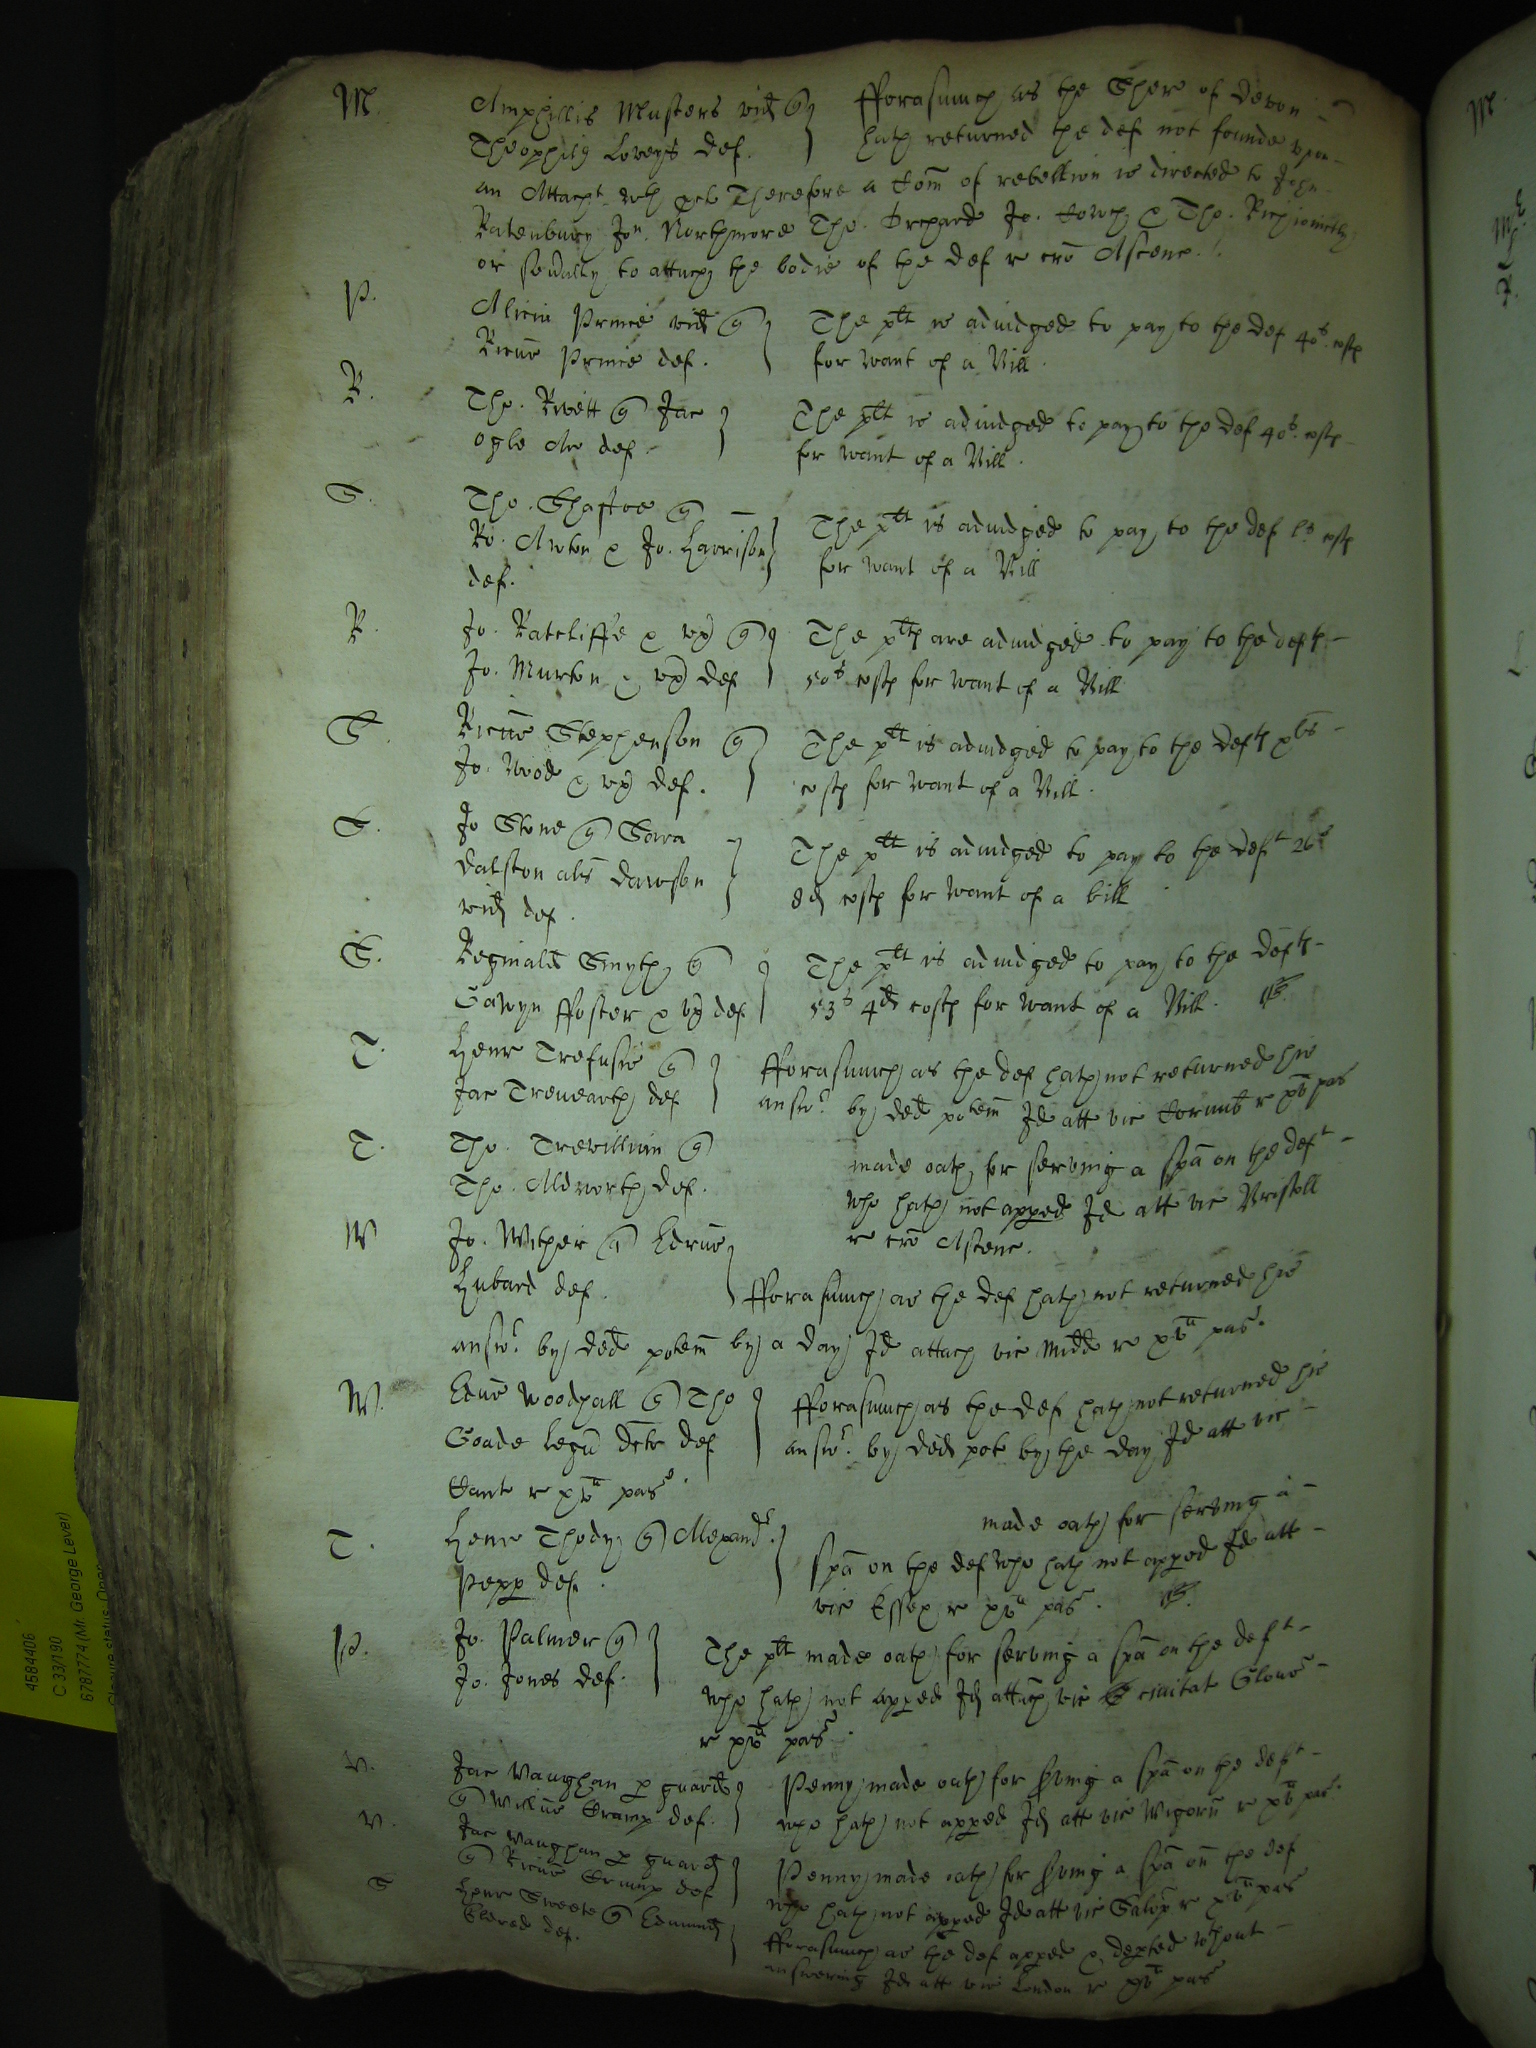 M. Amphillis Musters vid q Theophilus Loveys def.
fforasmuch as the Shere of Devon hath returned the def not founde upon
an Attacht wth procl Therefore a Com of rebellion is directed to John
Ratenbury Jon. Northmore Tho. Orchard Jo. & Tho. Rich iointly
or sevally to attach the bodie of the def r cro Ascenc.
P. Alicia Prince vid q
Ricus Prince def.
The plt is adiudged to pay to the def 40s. costs
for want of a Bill.
R. Tho. Rivett q Jac
Ogle Ar def.
The plt is adiudged to pay to the def 40s. costs
for want of a Bill.
S. Tho. Shaftoe q
Ro. Anton & Jo. Harrison
def.
The plt is adiudged to pay to the def ls costs
for want of a Bill
R. Jo. Ratcliffe & ux q
Jo. Murton & ux def
The plts are adiudged to pay to the defts
50s costs for want of a Bill
S. Ricus Stephenson q
Jo. Wood & ux def.
The plt is adiudged to pay to the defts xls
costs for want of a Bill.
S. Jo Stone q Sara
Dalston als Dawson
vid def.
The plt is adiudged to pay to the deft 26s
8d costs for want of a bill
S. Reginald Smyth q
Gawyn ffoster & ux def
The plt is adiudged to pay to the defts
53s 4d costs for want of a Bill.
T. Henr Trefusis q
Jac Trenearth def
fforasmuch as the def hath not returned his
answr by ded potem Id att vic Cornub r xva pas
T. Tho. Trevillian q
Tho. Aldworth def.
made oath for serving a spa on the deft
who hath not apped Id att vic Bristoll
r cro Ascenc.
W Jo. Wither q Edrus
Hubard def.
fforasmuch as the def hath not returned his
answr by ded potem by a day Id attach vic Midd r xva pas.
W. Edus Woodhall q Tho
Goade Legu Dctr def
fforasmuch as the def hath not returned his
answr. by ded pot by the day Id att vic
Cant r xva pas.
T. Henr Thody q Alexandr.
Pepp def.
made oath for serving a
spa on the def who hath not apped Id att
vic Essex r xva pas.
P. Jo. Palmer q
Jo. Jones def.
The plt made oath for serving a spa on the deft
who hath not apped Id attach vic civitat Glouc
r xva pas.
V. Jac Vaughan p guard
q Willus Cramp def.
Penny made oath for sving a spa on the deft
who hath not apped Id att vic Wigorn r xva pas.
V. Jac Vaughan p guard
q Ricus Cramp def
Penny made oath for sving a spa on the def
who hath not apped Id att vic Salop r xva pas
S Henr Sweete q Edmund
Eldred def.
fforasmuch as the def apped & depted wthout
answering Id att vic London r xva pas
4584406
C 33/190
6787774 (Mr. George Lever)
Closure status: Open